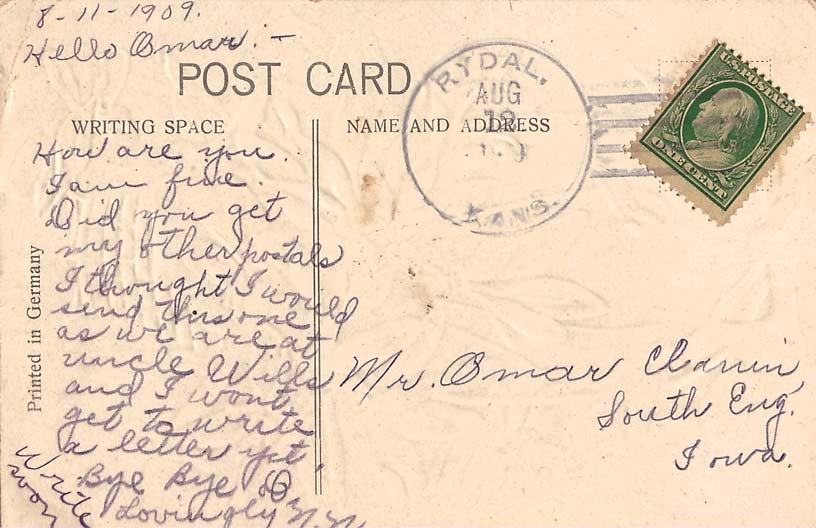 8-11-1909.
Hello Omar. -
POST CARD
WRITING SPACE
NAME AND ADDRESS
How are you.
I am fine.
Did you get
my other postals
I thought I would
send this one
as we are at
uncle Wills
and I wont
get to write
a letter yet,
Bye Bye
Lovingly N.N.
Write
soon
Printed in Germany
RYDAL,
AUG
12
KANS.
U.S. POSTAGE
ONE CENT
Mr. Omar Clanin
South Eng.
Iowa.